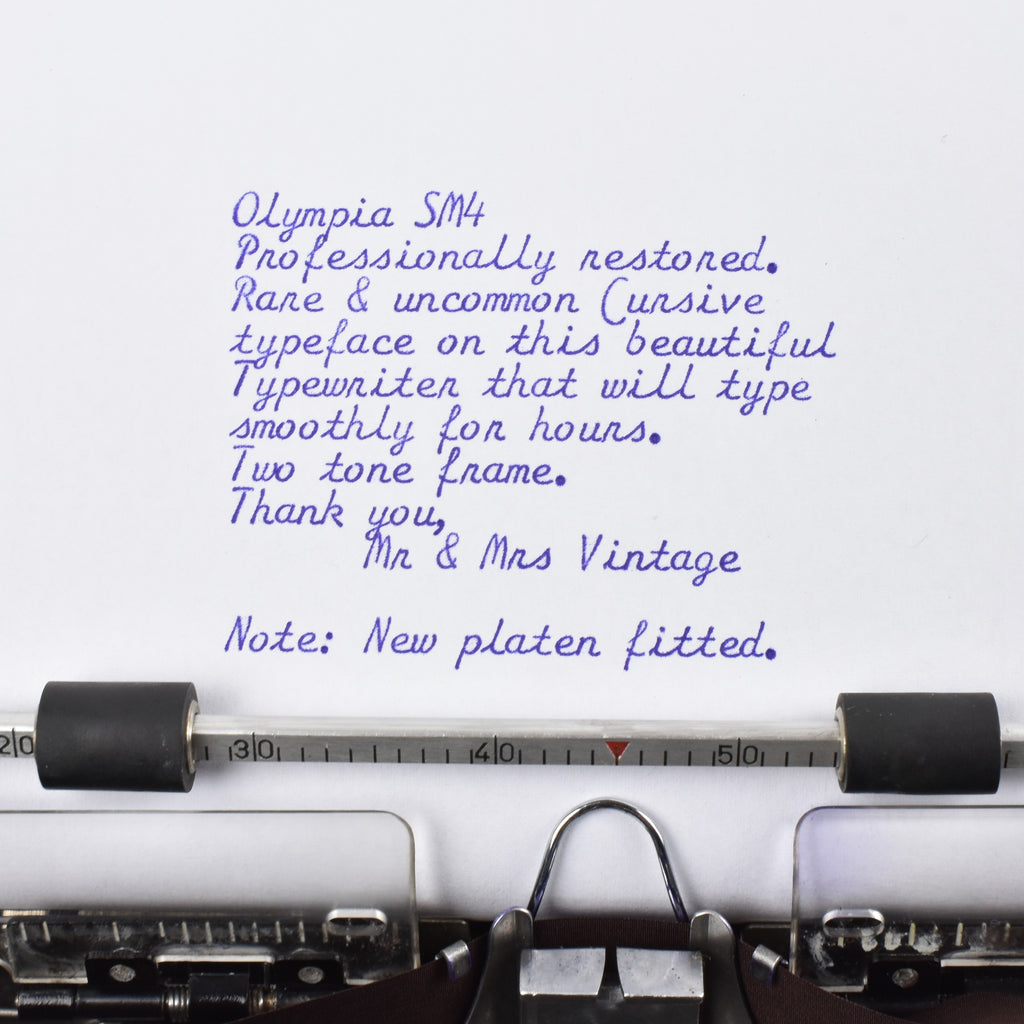 Olympia SM4
Professionally restored.
Rare & uncommon Cursive
typeface on this beautiful
Typewriter that will type
smoothly for hours.
Two tone frame.
Thank you,
Mr & Mrs Vintage
Note: New platen fitted.
20 30 40 50